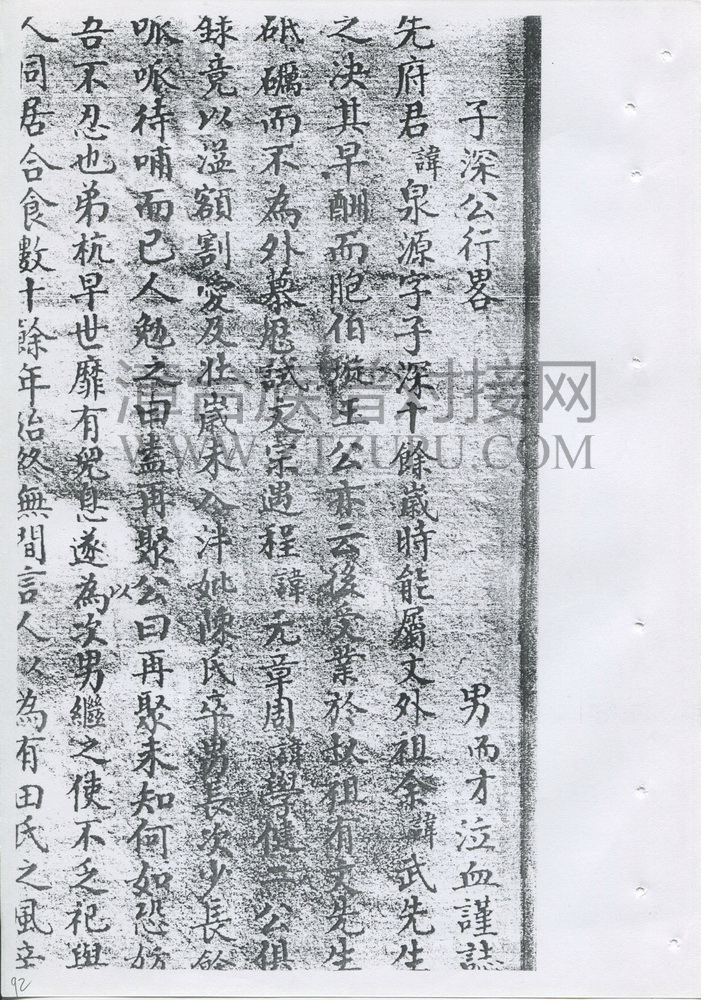 子深公行畧 男而才泣血謹誌
先府君諱泉源字子深十餘歲時能屬文外祖余諱武先生
之決其早酬而貺伯璇王公亦云後受業於叔祖有文先生
砥礪而不為外慕思試文宗遇程諱元章周諱學健二公俱
錄竟以溢額割愛及壯歲未入泮妣陳氏卒男長次少長餘
呱呱待哺而已人勉之曰盍再聚公曰再聚未知何如恐妨
吾不忍也弟杭早世靡有兒息遂以為次男繼之使不乏祀與
人同居合食數十餘年始終無間言人以為有田氏之風
漳台族譜对接网
WWW.ZTZUPU.COM
92